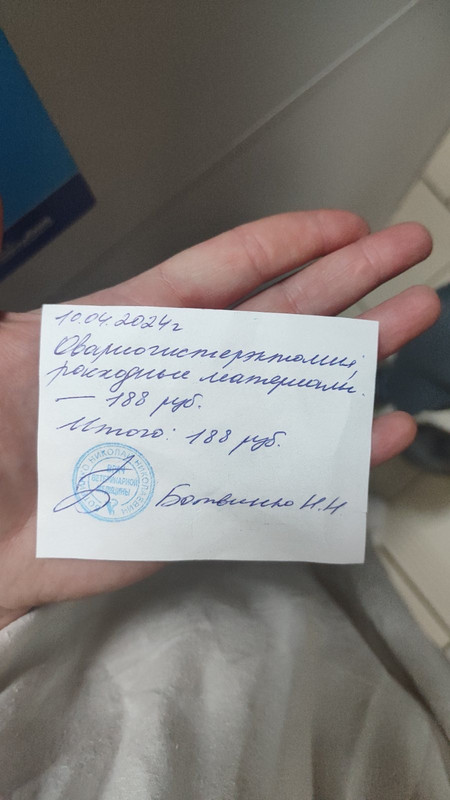 10.04.2024г
Овариогистерэктомия,
расходные материалы.
— 188 руб.
Итого: 188 руб.
НИКОЛАЙ НИКОЛАЕВИЧ
ВРАЧ
ВЕТЕРИНАРНОЙ
МЕДИЦИНЫ
Ботвинко Н.Н